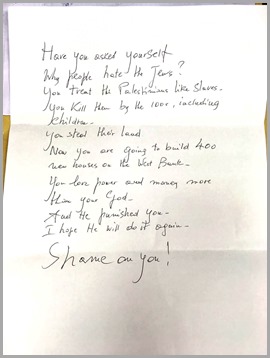 Have you asked yourself
Why people hate the Jews?
You treat the Palestinians like Slaves-
You Kill them by the 100s, including
children-
You steal their land.
Now you are going to build 400
new houses on the West Bank-
You love power and money more
than your God-
And He punished you-
I hope He will do it again-
Shame on you!